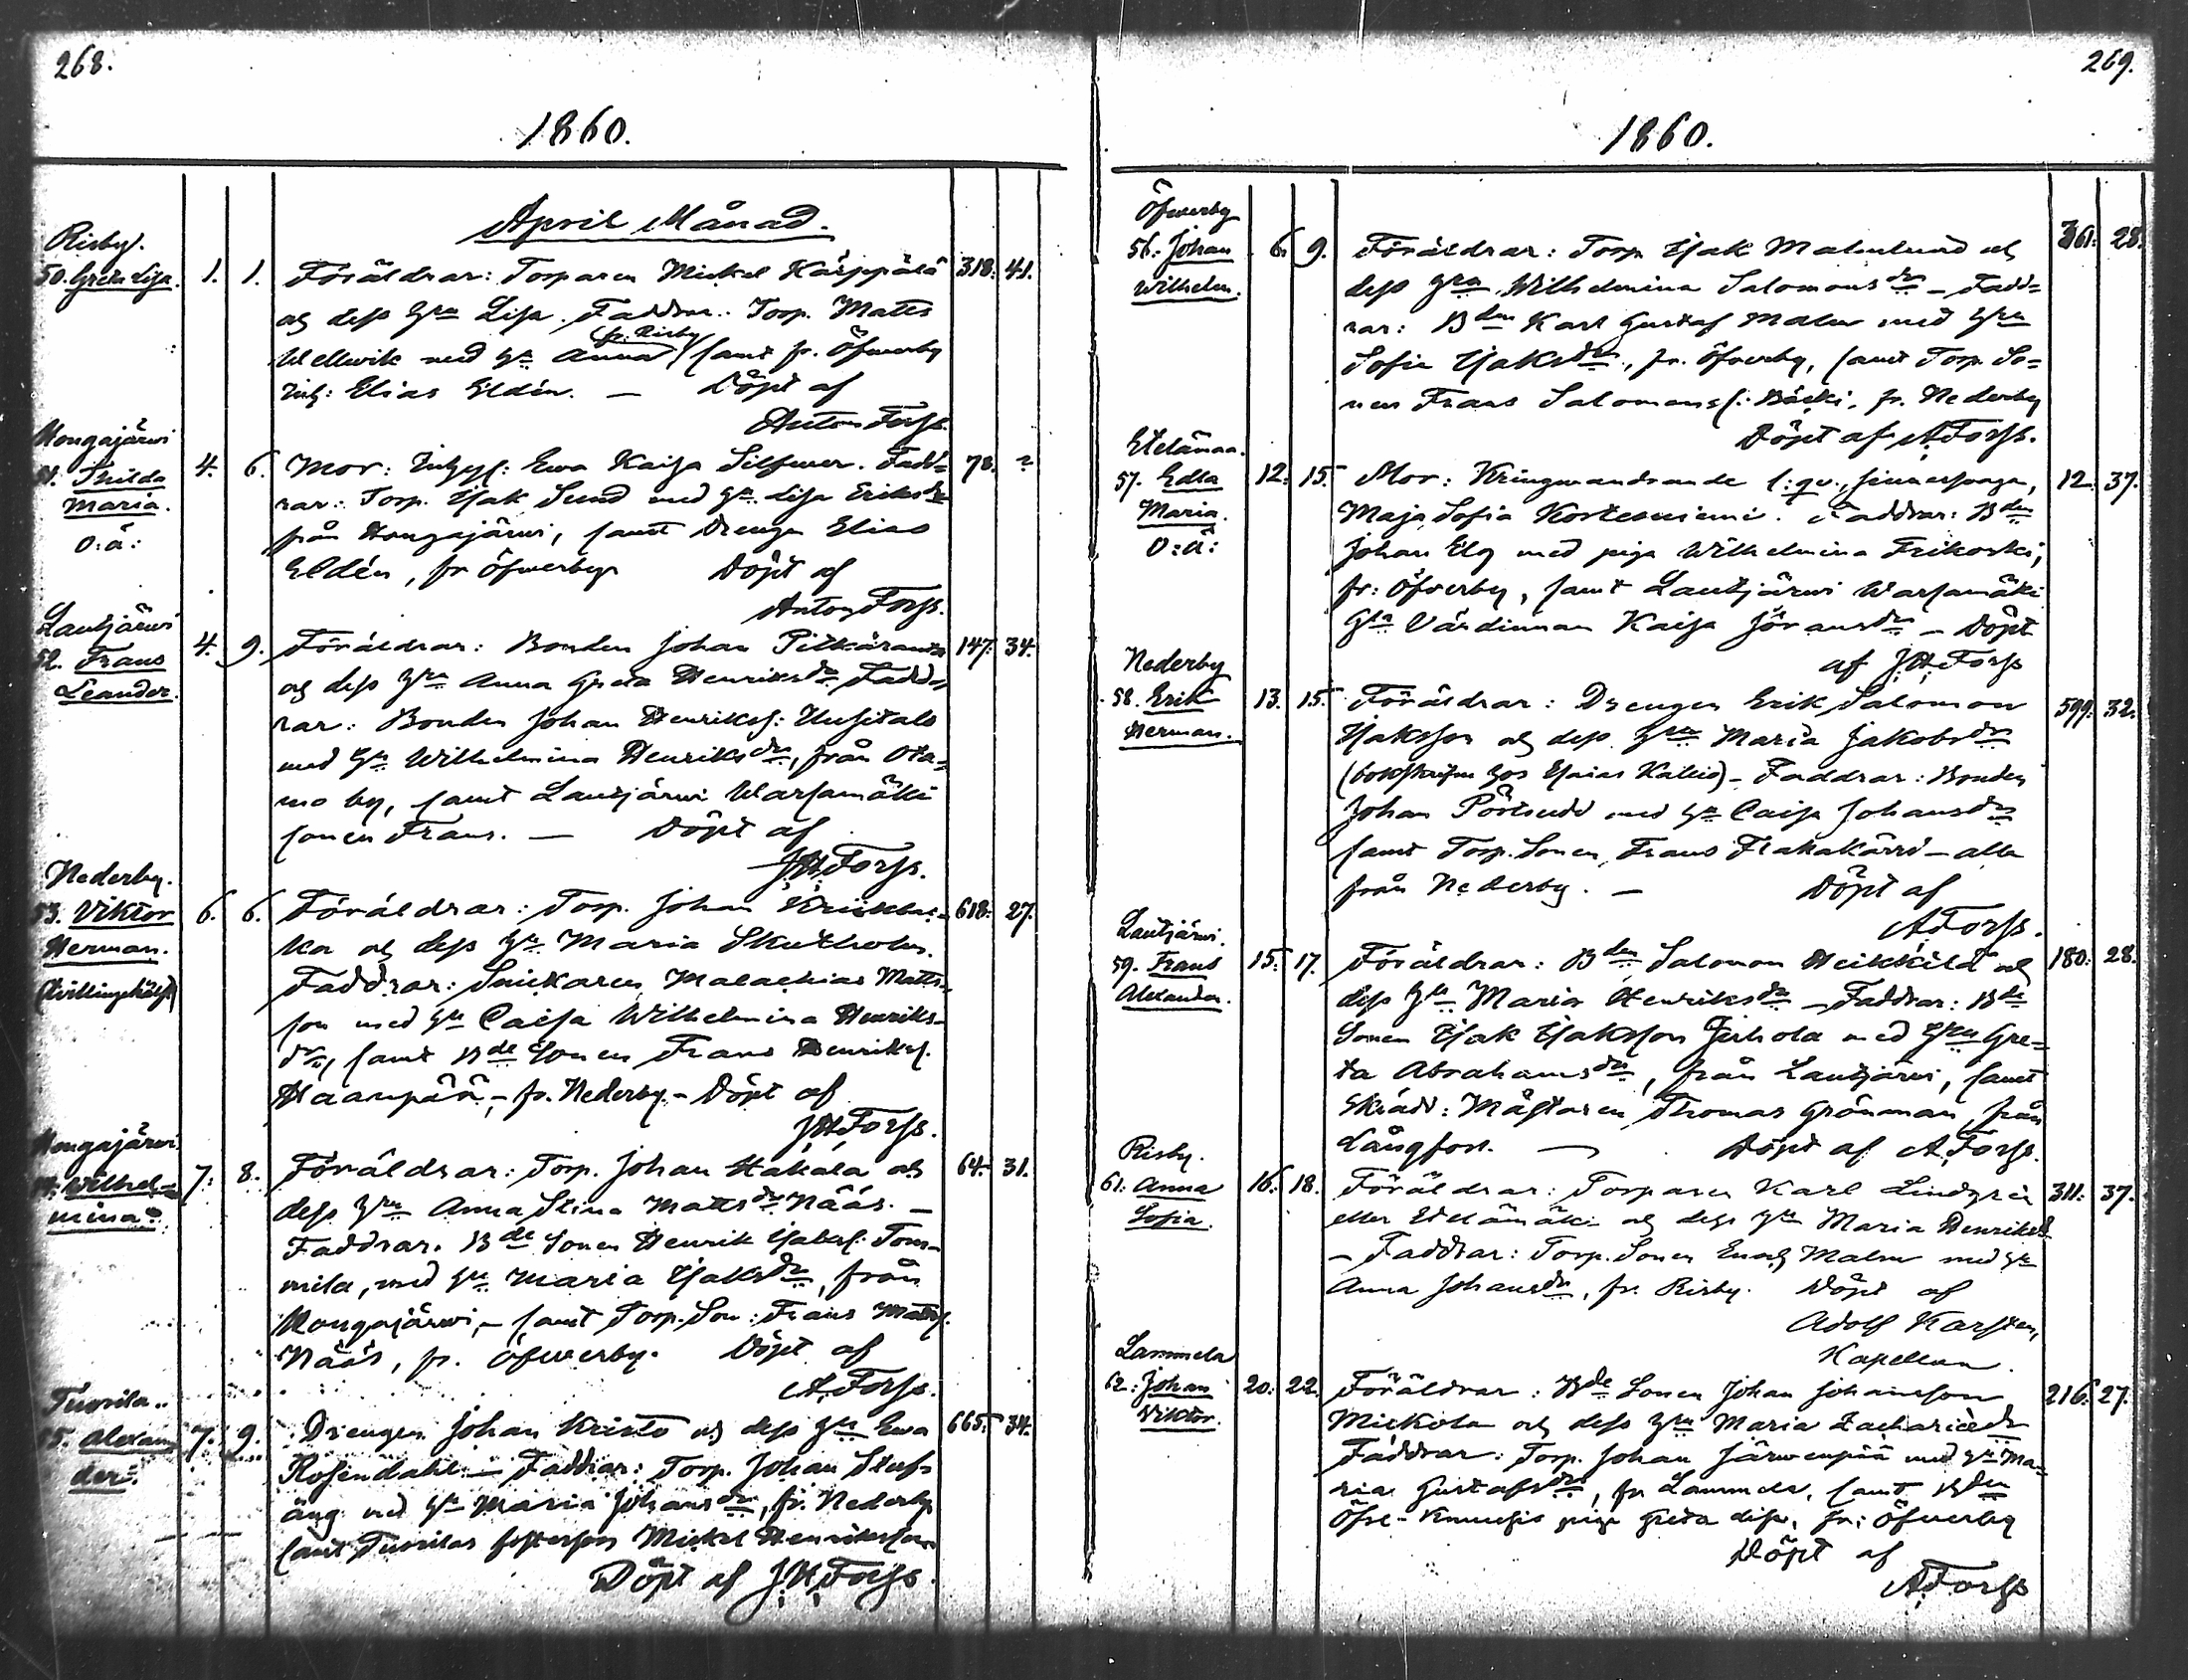 268.
1860.
April Månad.
Risby.
50. Greta Lisa. 1. 1. Föräldrar: Torparen Mickel Kärppälä 318. 41.
och dess Hu Lisa. Faddrar: Torp. Matts
fr. Risby
Wellwik med Hu Anna, samt fr. Öfwerby
Inh: Elias Eldén. — Döpt af
Anton Forss.
Kongajärwi
Thilda 4. 6. Mor: Inhys: Ewa Kaisa Silfwer. Fadd= 78. ?
Maria. rar: Torp. Isak Sund med Hu Lisa Eriksdr
O:ä: från Kongajärwi, samt Drengen Elias
Eldén, fr Öfwerby Döpt af
Anton Forss.
Lautjärwi
52. Frans 4. 9. Föräldrar: Bonden Johan Pitkäranta 147. 34.
Leander. och dess Hru Anna Greta Henriksdr Fadd=
rar: Bonden Johan Henrikss: Uusitalo
med Hu Wilhelmina Henriksdr, från Ota=
mo by, samt Lautjärwi Warsamäki
sonen Frans. — Döpt af
JHForss.
Nederby.
53. Viktor 6. 6. Föräldrar: Torp. Johan 618. 27.
Herman. ka och dess Hu Maria Skutholm.
(tvillingehälft) Faddrar: Snickaren Malachias Matts-
son med Hu Caisa Wilhelmina Henriks-
dr, samt Bde Sonen Frans Henrikss.
Haanpää, fr. Nederby. - Döpt af
JHForss.
Kongajärwi
Wilhel= 7. 8. Föräldrar: Torp. Johan Hakala och 64. 31.
mina. dess Hru Anna Stina Mattsdr Nääs. —
Faddrar. Bde Sonen Henrik Isakss: Tom-
mila, med Hu Maria Isaksdr, från
Kongajärwi, - samt Torp. Son: Frans Mattss.
Nääs, fr. Öfwerby. Döpt af
A. Forss.
Tuorila.
55. Alexan= 7. 9. Drengen Johan Kristo och dess Hu Ewa 665. 34.
der. Rosendahl. — Faddrar: Torp. Johan
äng med Hu Maria Johansdr, fr. Nederby
samt Tuorilas fosterson Mickel Henriksson
Döpt af J.H.Forss.
269.
1860.
Öfwerby
56. Johan 6. 9. Föräldrar: Torp Isak Malmlund och 361. 28.
Wilhelm. dess Hru Wilhelmina Salomonsdr — Fadd=
rar: Bden Karl Gustaf Malm med Hru
Sofia Isaksdr, fr. Öfwerby, samt Torp. So=
nen Frans Salomonss: Bäcki, fr. Nederby
Döpt af A.Forss.
Etelämaa.
57. Edla 12. 15. Mor: Kringwandrande 12. 37.
Maria. Maja Sofia Kortesniemi. Faddrar: Bden
O:ä: Johan Elg med piga Wilhelmina Frikoski,
fr: Öfverby, samt Lautjärwi Warsamäki
Gla Värdinnan Kaisa Göransdr — Döpt
af J.H.Forss
Nederby
58. Erik 13. 15. Föräldrar: Drengen Erik Salomon 599. 32.
Herman. Isaksson och dess Hru Maria Jakobsdr
(bokskrifven hos Esaias Kallio) — Faddrar: Bonden
Johan med Hu Caisa Johansdr
samt Torp. Sonen, Frans — alla
från Nederby. — Döpt af
A.Forss.
Lautjärwi.
59. Frans 15. 17. Föräldrar: Bden Salomon Heikkilä och 180. 28.
Alexander. dess Hu Maria Henriksdr — Faddrar: Bde
Sonen Isak Isaksson med Hru Gre=
ta Abrahamsdr, från Lautjärwi, samt
Skräd: Mästaren Thomas Grönman, från
Långfors. — Döpt af A.Forss.
Risby.
61. Anna 16. 18. Föräldrar: Torparen Karl Lindgren 311. 37.
Sofia. eller Etelämäki och dess Hu Maria Henriksd
— Faddrar: Torp. Sonen Enoch Malm med Hu
Anna Johansdr, fr. Risby. Döpt af
Adolf Karsten,
Kapellan.
Lammela
62. Johan 20. 22. Föräldrar: Bde Sonen Johan Johansson 216. 27.
Viktor. Mickola och dess Hru Maria Zachariædr
Faddrar: Torp. Johan Järwenpää med Hu Ma=
ria Gustafsdr, fr Lammela, samt Bden
Öfre-Knuussis piga Greta Lisa, fr: Öfwerby
Döpt af
A.Forss